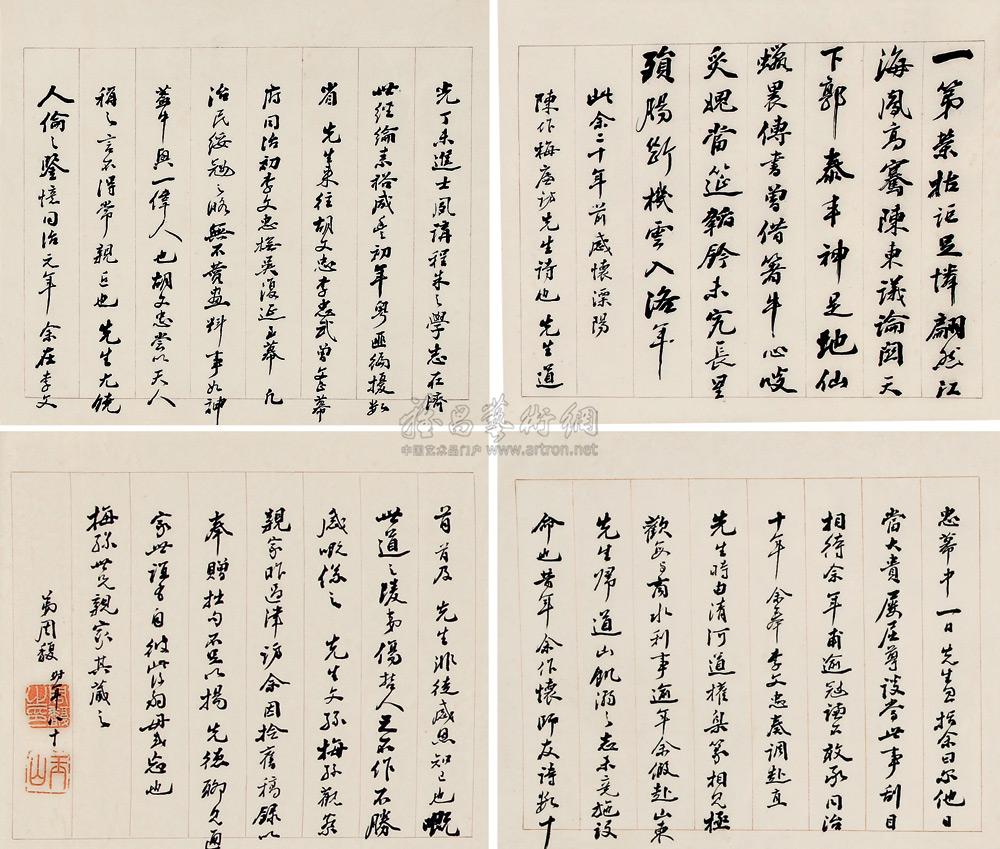 一第榮枯詎足憐翩然江
海鳳高騫陳東議論關天
下郭泰丰神是地仙
蠟畏傳書曾借箸牛心啖
炙媿當筵韜鈐未究長星
殞腸斷機雲入洛年
此余二十年前感懷溧陽
陳作梅廉訪先生詩也先生道
光丁未進士夙講程朱之學志在濟
世經綸素裕咸豐初年粵匪徧擾數
省先生來往胡文忠李忠武曾文幕
府同治初李文忠撫吳復延至幕凡
治民綏寇之略無不贊畫料事如神
蓋中興一偉人也胡文忠嘗以天人
稱之言不得常親也先生尤
人倫之鑒憶同治元年余在李文
忠幕中一日先生忽招余曰尔他日
當大貴屢屈尊談當世事刮目
相待余年甫逾冠謹不敢承同治
十年余奉李文忠奏調赴直
先生時由清河道權臬篆相見極
歡每与商水利事逾年余假赴山東
先生歸道山飢溺之志未竟施設
命也昔年余作懷師友詩數十
首首及先生非徒感恩知己也慨
世道之陵夷傷哲人之不作不勝
感慨係之先生文孫梅孫觀察
親家昨過津訪余因撿舊稿錄以
奉贈拙句不足以揚先德聊見通
家世誼有自彼此毋或忘也
梅孫世兄親家其藏之
弟周馥時年八十
雅昌藝術網
中国艺术品门户 www.artron.net